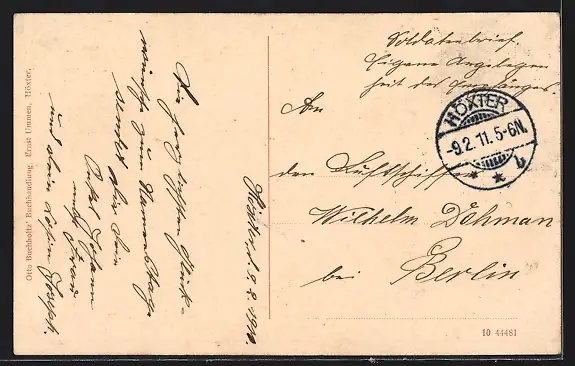 Die herzlichsten Glück-
wünsche zum Namenstage
sendet dir dein
Onkel Johann
nebst Frau
und dein Joseph.
Höxter d. 9.2.1911
Soldatenbrief.
Eigene Angelegen
heit des Empfängers
An
den Luftschiffer
Wilhelm Dohman
bei
Berlin
HÖXTER
-9.2.11.5-6N.
* * b
Otto Buchholtz' Buchhandlung, Ernst Ummen, Höxter.
10 44481